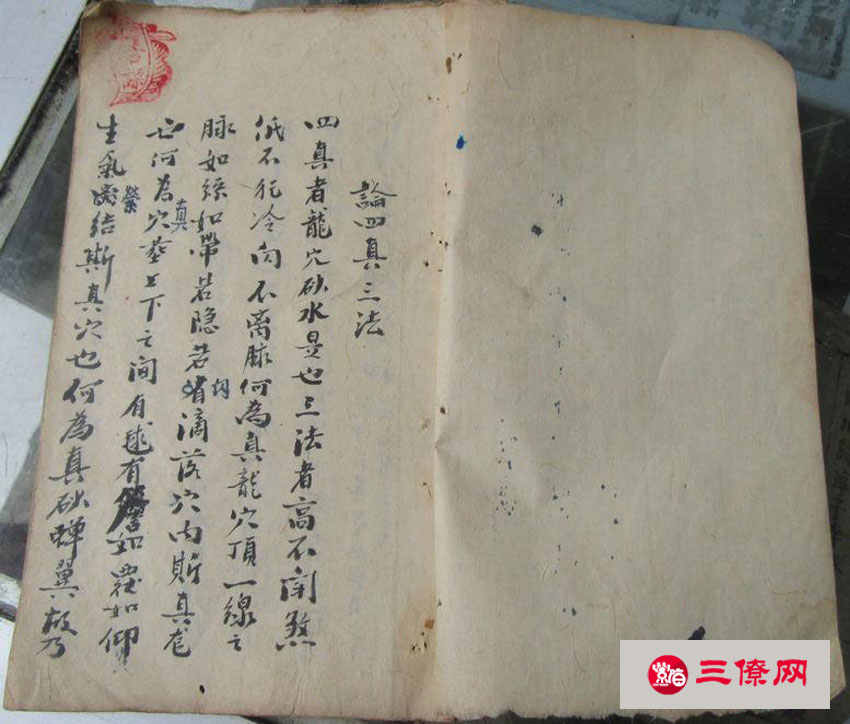 論四真三法
四真者龍穴砂水是也三法者高不闘煞
低不犯冷向不离脉何為真龍穴頂一線之
脉如絲如帶若隐若滴落穴内斯真龙
也何為真穴葢上下之间有毬有簷如覆如仰
生氣縈结斯真穴也何為真砂蝉翼故乃
三僚网